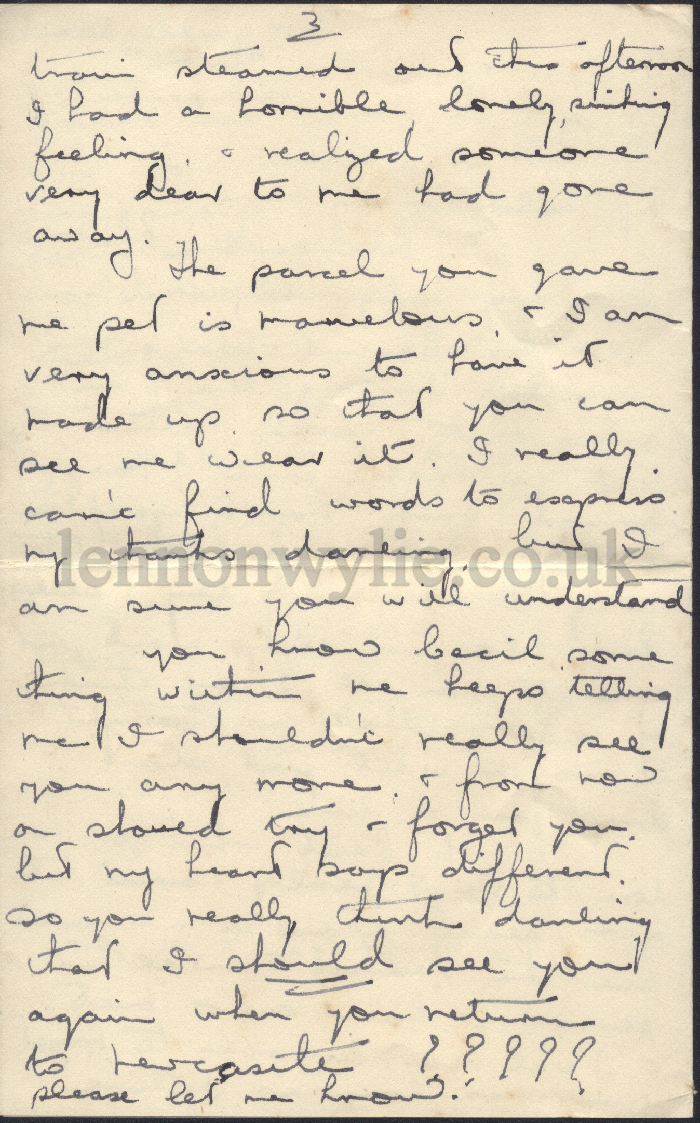 3
train steamed out this afternoon
I had a horrible, lonely, sinking
feeling, & realized someone
very dear to me had gone
away.
The parcel you gave
me pet is marvelous, & I am
very anscious to have it
made up so that you can
see me wear it. I really
can't find words to express
my thanks darling, but I
lennonwylie.co.uk
am sure you will understand
you know Cecil some
thing within me keeps telling
me I shouldn't really see
you any more, & from now
on should try & forget you.
but my heart says different.
so you really think darling
that I should see you
again when you return
to newcastle ?????
please let me know.